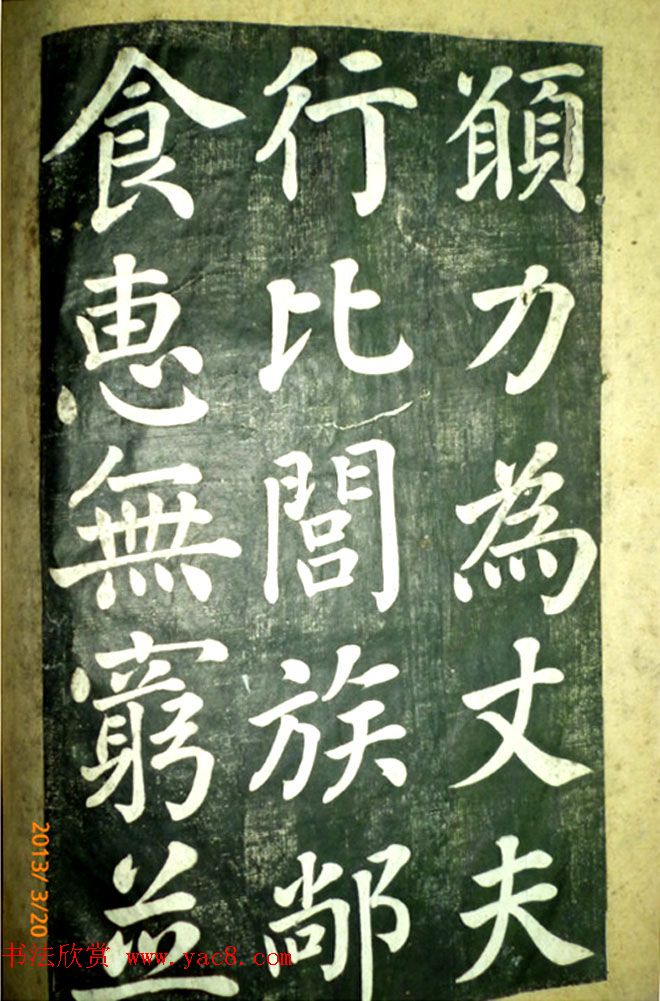 願力為丈夫
行比閭族䣊
食恵無窮並
2013/ 3/20
书法欣赏 www.yac8.com